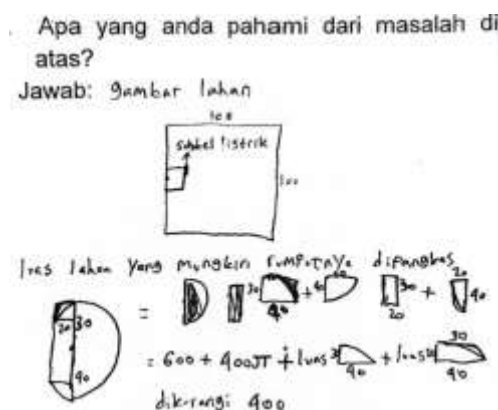 Apa yang anda pahami dari masalah di
atas?
Jawab: gambar lahan
100
sumber listrik
100
luas lahan yang mungkin rumputnya dipangkas
20 30 40 = 30 40 + 40 30 20 + 20 40
= 600 + 400π + luas 30 40 + luas 30 40
dikurangi 400